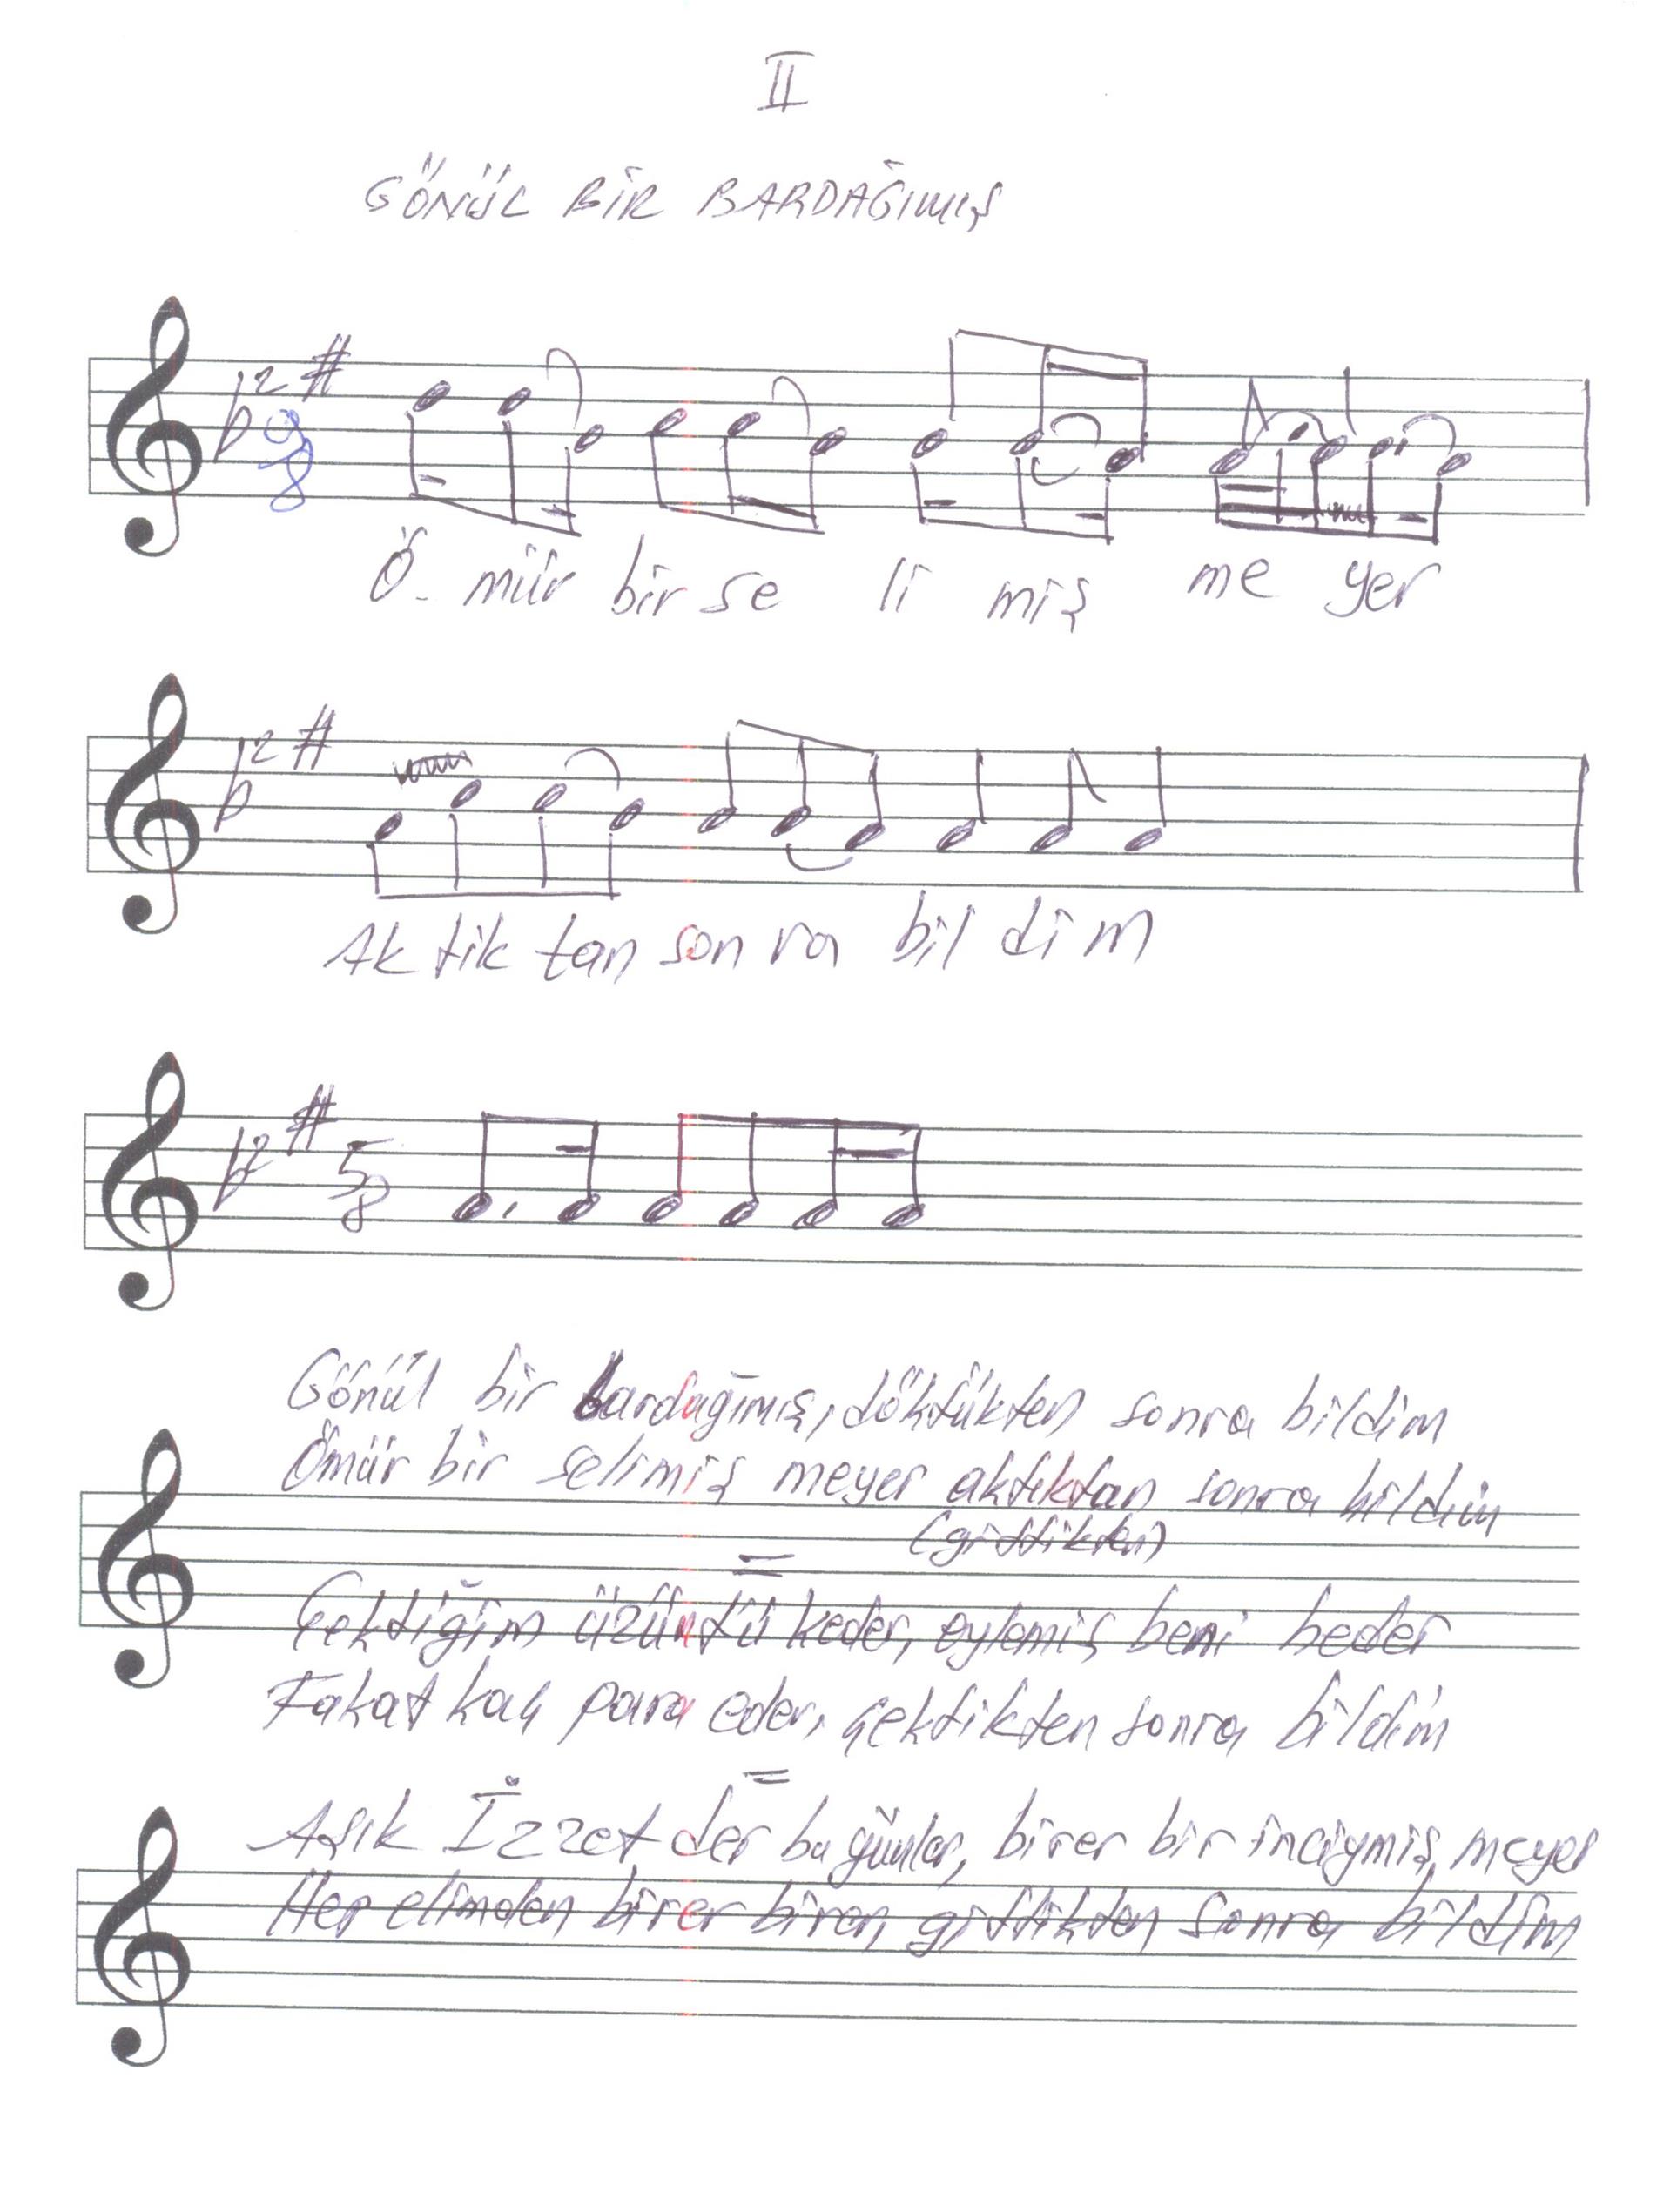 II
GÖNÜL BİR BARDAĞIMIŞ
2
9
8
Ö- mür bir se li miş me yer
2
Ak tik tan son ra bil dim
2
5
8
Gönül bir bardağımış, döktükten sonra bildim
Ömür bir selimiş meyer aktıktan sonra bildim
(gittikten)
=
Çektiğim üzüntü keder, eylemiş beni heder
Fakat kaç para eder, çektikten sonra bildim
=
Aşık İzzet der bu günler, birer bir inciymiş, meyer
Her elimden birer birer, gittikten sonra bildim